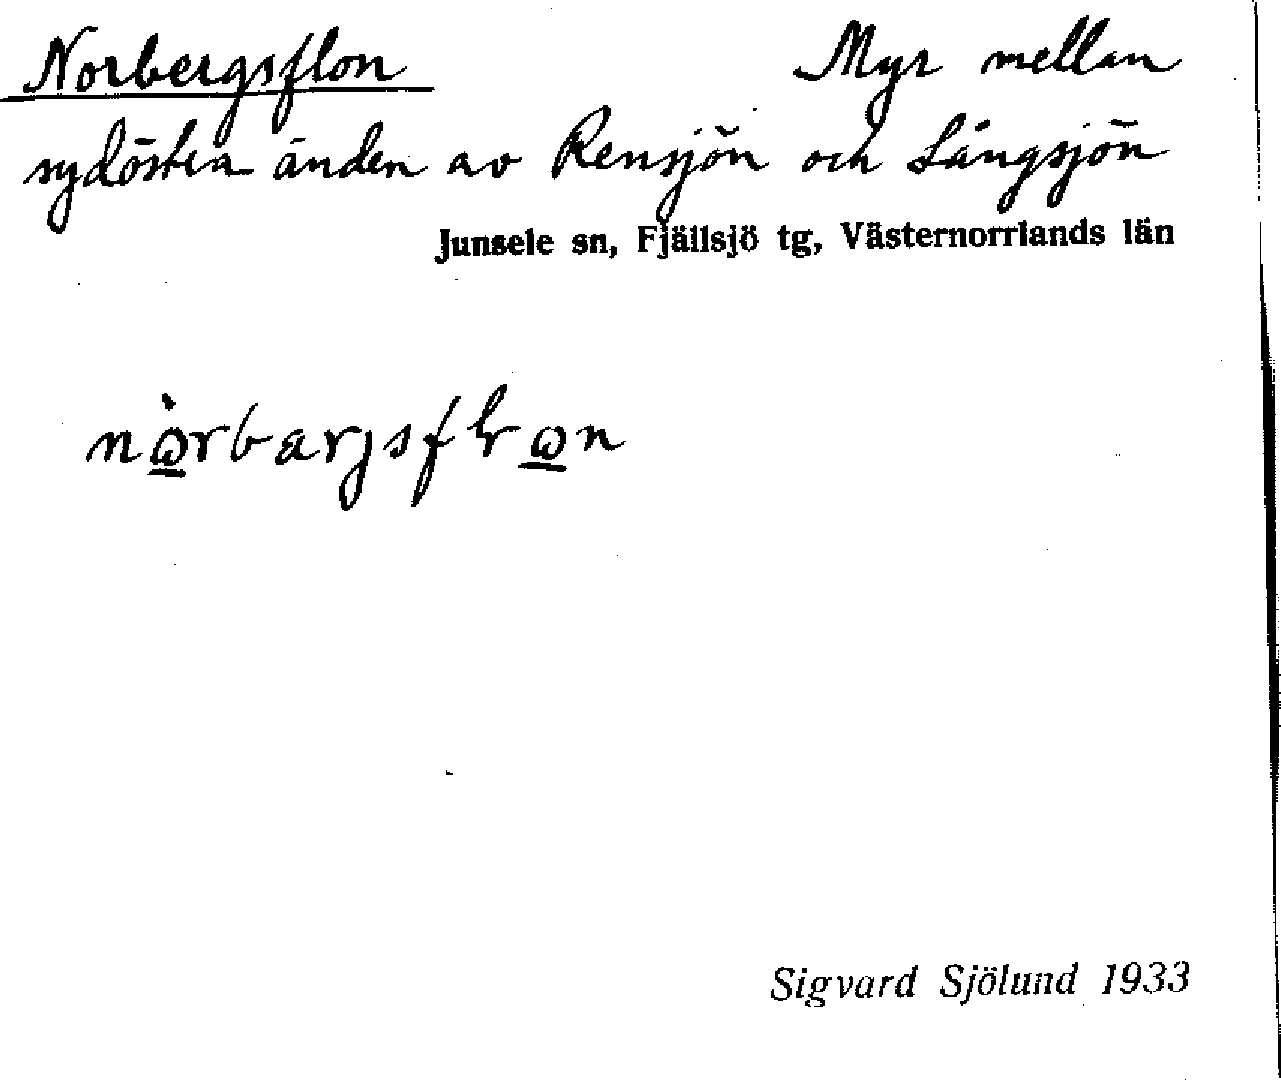 Norbergsflon Myr mellan
sydöstra änden av Rensjön och Långsjön
Junsele sn, Fjällsjö tg, Västernorrlands län
Sigvard Sjölund 1933